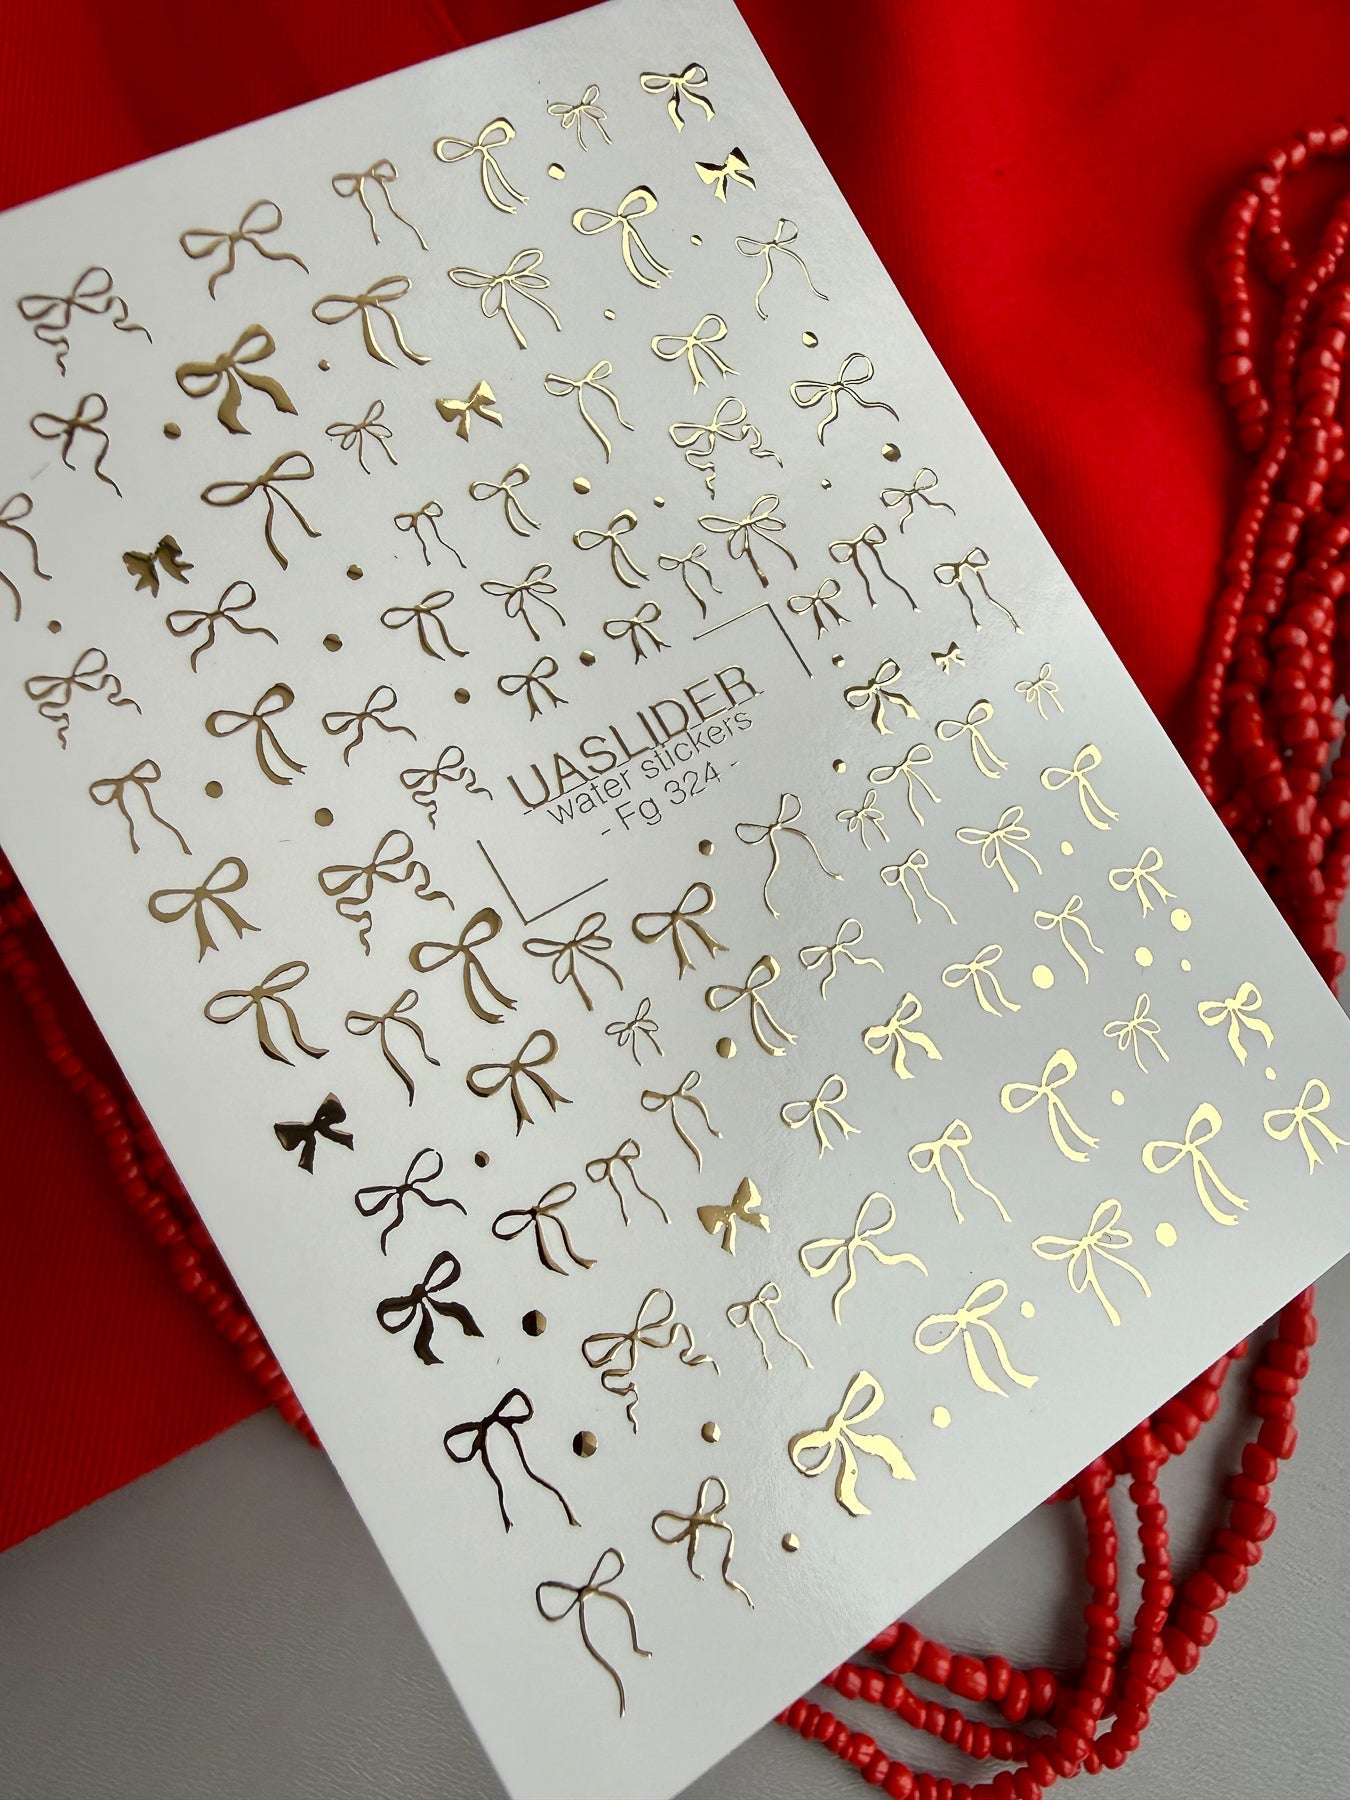 UASLIDER
- water stickers
- Fg 324 -